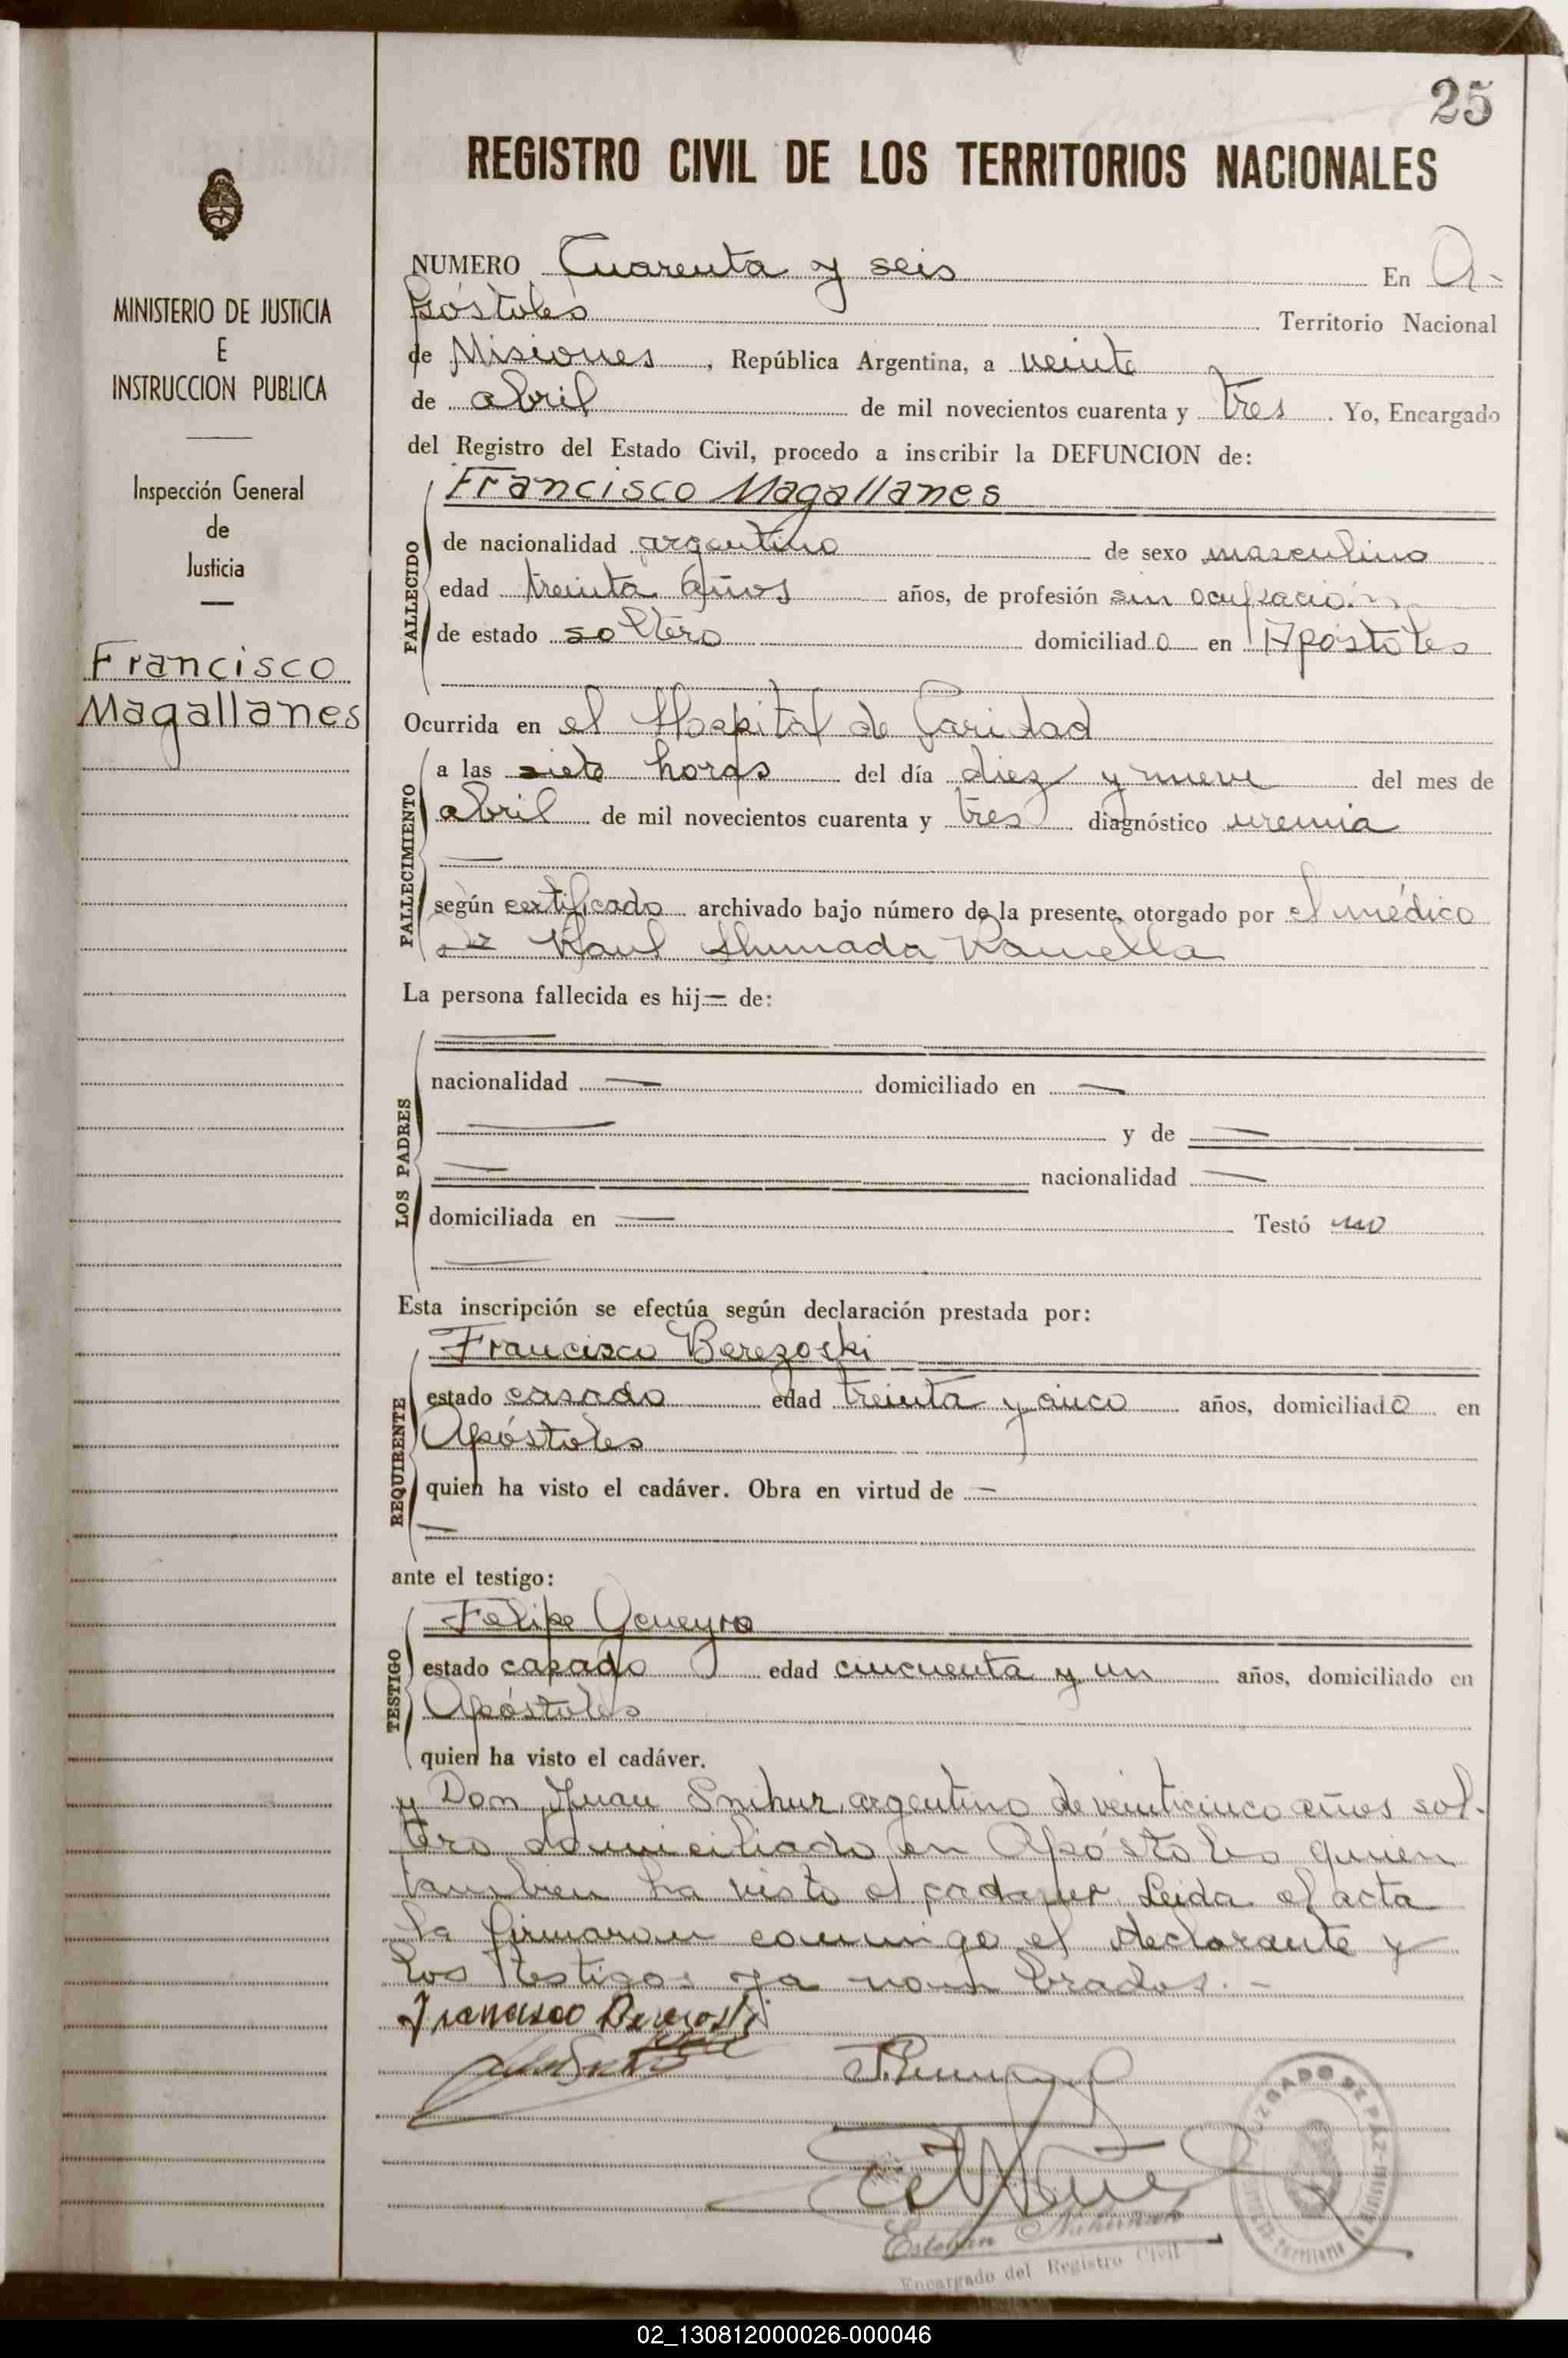 25
REGISTRO CIVIL DE LOS TERRITORIOS NACIONALES
MINISTERIO DE JUSTICIA
E
INSTRUCCION PUBLICA
Inspección General
de
Justicia
Francisco
Magallanes
NUMERO Cuarenta y seis En A-
póstoles Territorio Nacional
de Misiones, República Argentina, a veinte
de abril de mil novecientos cuarenta y tres. Yo, Encargado
del Registro del Estado Civil, procedo a inscribir la DEFUNCION de:
Francisco Magallanes
FALLECIDO
de nacionalidad argentino de sexo masculino
edad treinta años años, de profesión sin ocupación
de estado soltero domiciliado en Apóstoles
Ocurrida en el Hospital de Caridad
FALLECIMIENTO
a las siete horas del día diez y nueve del mes de
abril de mil novecientos cuarenta y tres diagnóstico uremia
según certificado archivado bajo número de la presente, otorgado por el médico
Dr Raul Ahumada Ramella
La persona fallecida es hij— de:
LOS PADRES
nacionalidad — domiciliado en —
— y de —
— nacionalidad —
domiciliada en — Testó no
Esta inscripción se efectúa según declaración prestada por:
Francisco Berezoski
REQUIRENTE
estado casado edad treinta y cinco años, domiciliado en
Apóstoles
quien ha visto el cadáver. Obra en virtud de —
ante el testigo:
Felipe Geneyro
TESTIGO
estado casado edad cincuenta y un años, domiciliado en
Apóstoles
quien ha visto el cadáver.
y Don Juan Snihur, argentino de veinticinco años sol-
tero domiciliado en Apóstoles quien
tambien ha visto el cadaver. Leida el acta
la firmaron conmigo el declarante y
los testigos ya nombrados.-
Francisco Berezoski
JUZGADO DE PAZ
Esteban
Encargado del Registro Civil
02_130812000026-000046